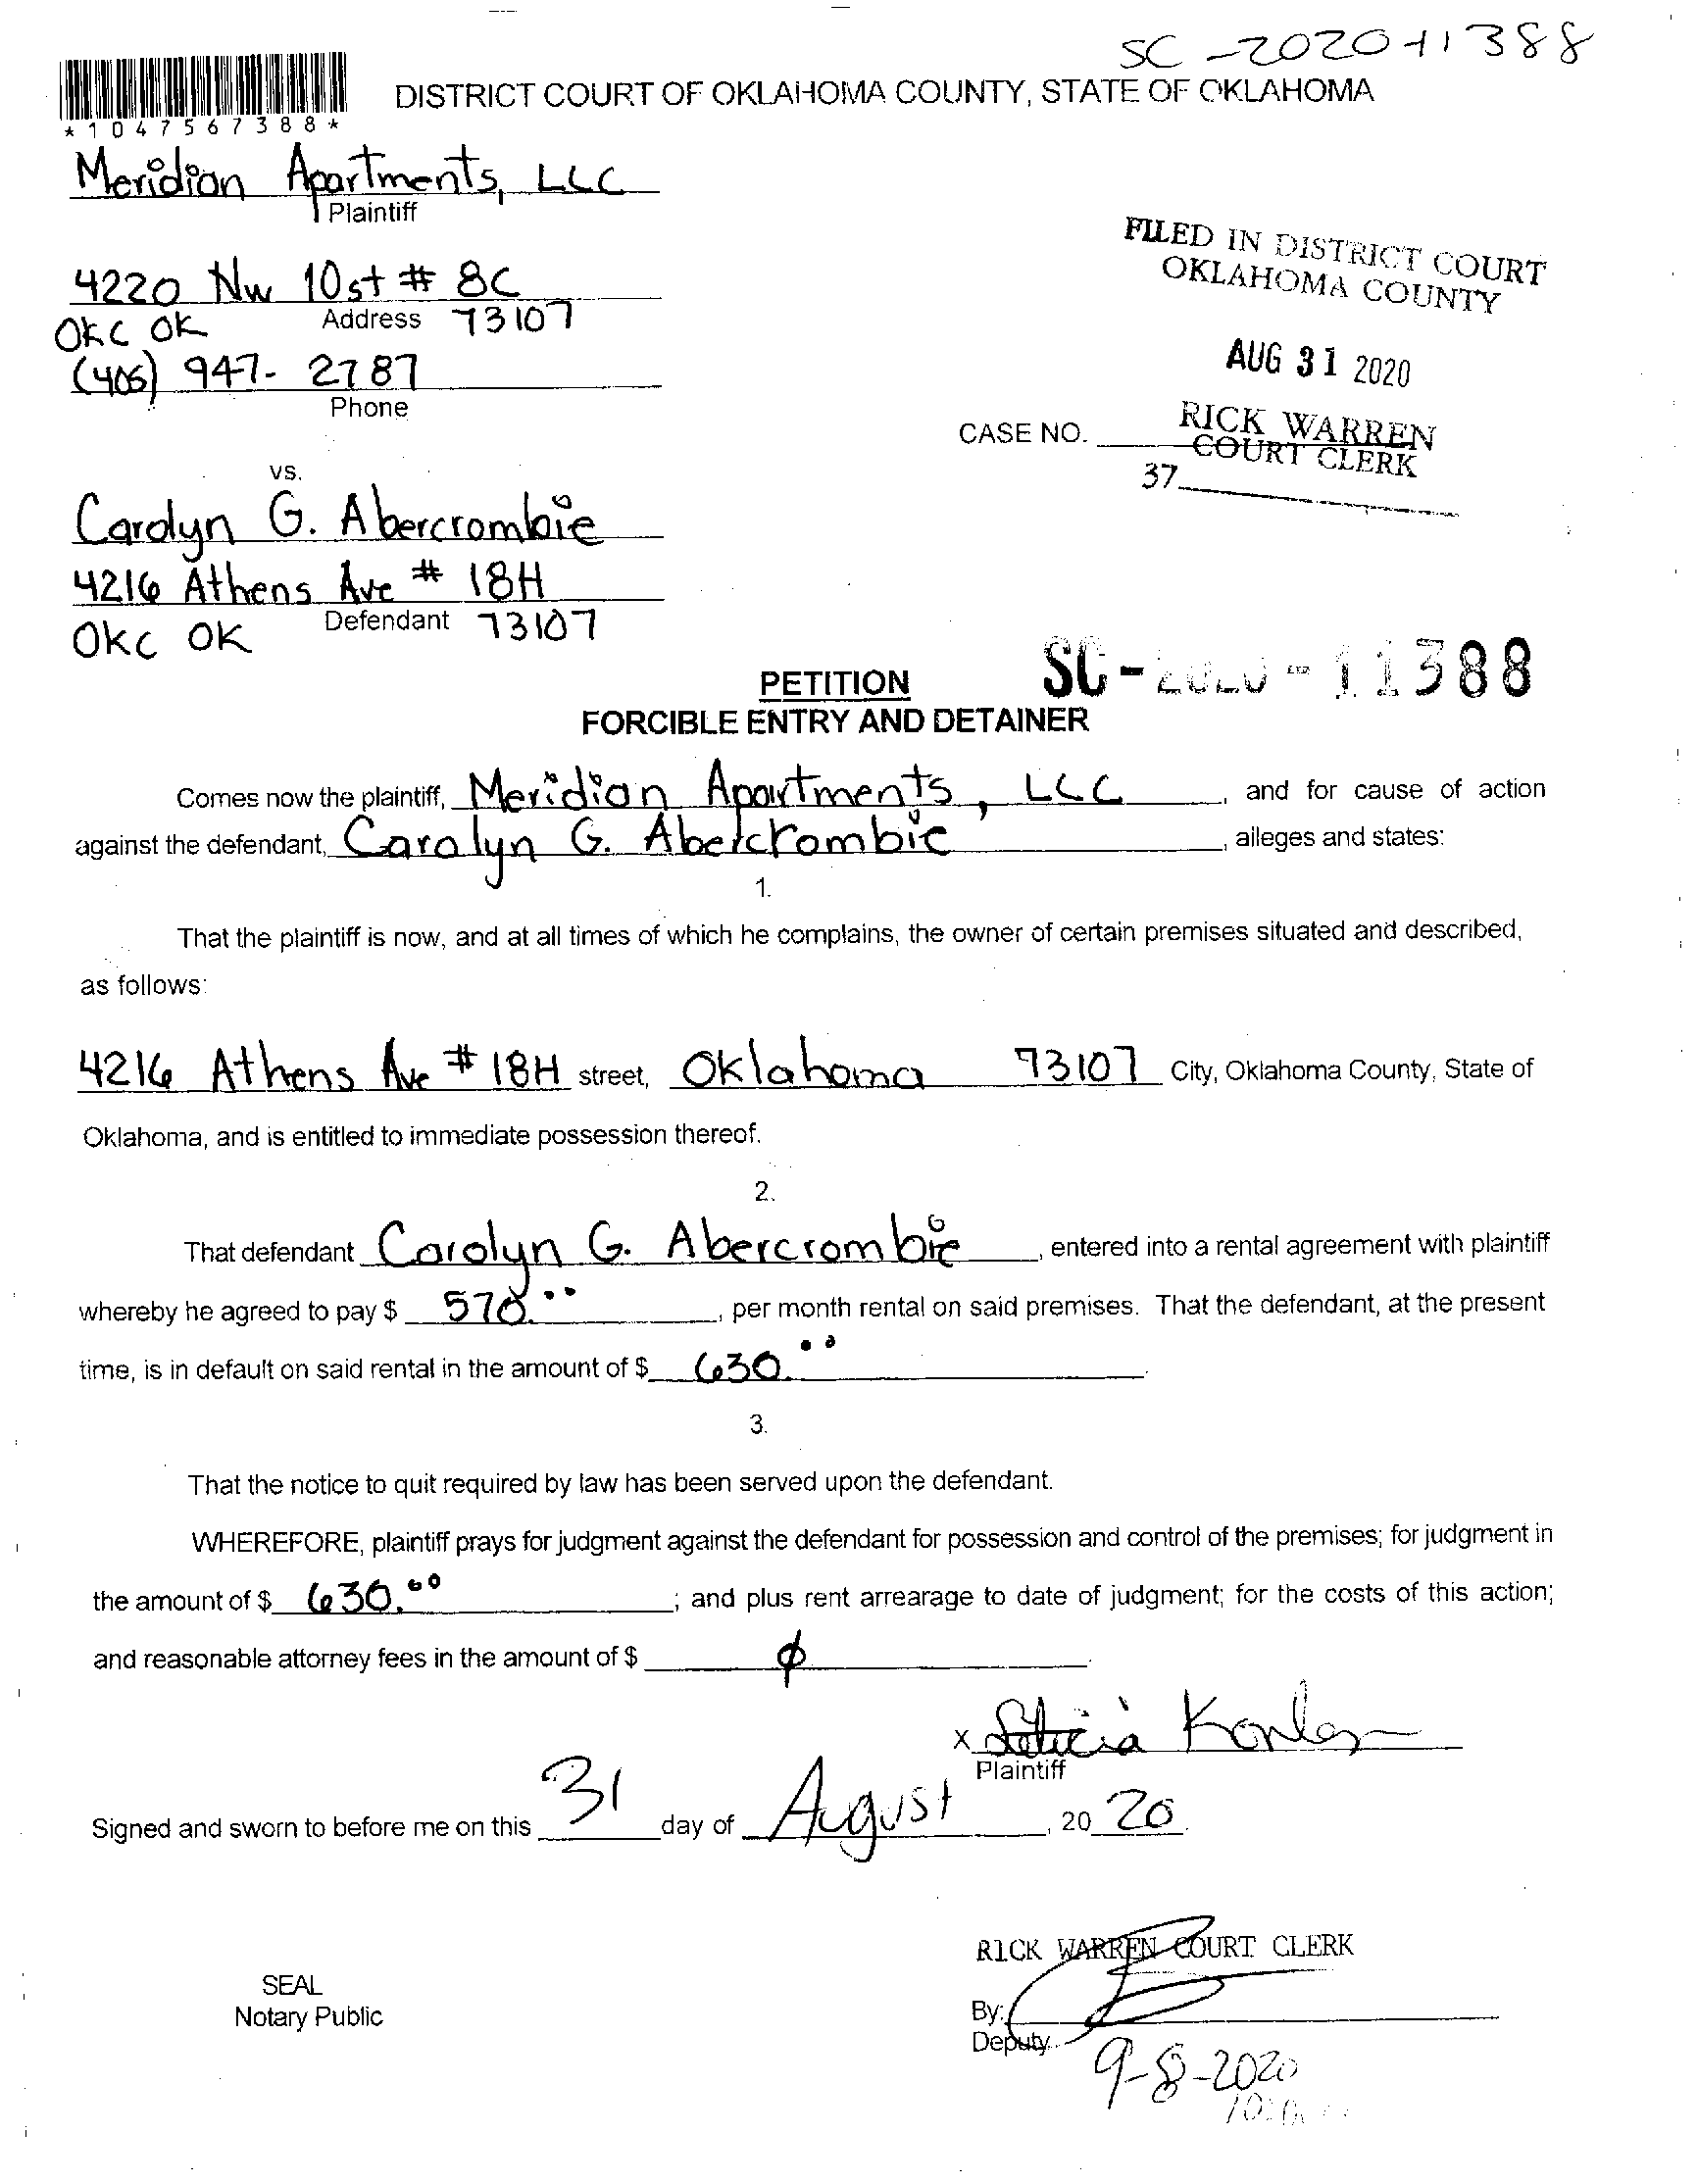 SC-2020-11388
DISTRICT COURT OF OKLAHOMA COUNTY, STATE OF OKLAHOMA
*1047567388*
Meridian Apartments, LLC
Plaintiff
FILED IN DISTRICT COURT
OKLAHOMA COUNTY
4220 NW 10st # 8C
Address 73107
OKC OK
AUG 31 2020
(405) 947-2787
Phone
RICK WARREN
CASE NO.
COURT CLERK
37
vs.
Carolyn G. Abercrombie
4216 Athens Ave # 18H
Defendant 73107
OKC OK
SC-2020-11388
PETITION
FORCIBLE ENTRY AND DETAINER
Comes now the plaintiff, Meridian Apartments, LLC, and for cause of action
against the defendant, Carolyn G. Abercrombie, alleges and states:
1.
That the plaintiff is now, and at all times of which he complains, the owner of certain premises situated and described,
as follows:
4216 Athens Ave # 18H street, Oklahoma 73107 City, Oklahoma County, State of
Oklahoma, and is entitled to immediate possession thereof.
2.
That defendant Carolyn G. Abercrombie, entered into a rental agreement with plaintiff
whereby he agreed to pay $ 570.00, per month rental on said premises. That the defendant, at the present
time, is in default on said rental in the amount of $ 630.00
3.
That the notice to quit required by law has been served upon the defendant.
WHEREFORE, plaintiff prays for judgment against the defendant for possession and control of the premises; for judgment in
the amount of $ 630.00; and plus rent arrearage to date of judgment; for the costs of this action;
and reasonable attorney fees in the amount of $ ϕ
X Leticia
Plaintiff
Signed and sworn to before me on this 31 day of August, 20 20.
RICK WARREN COURT CLERK
SEAL
Notary Public
By:
Deputy
9-8-2020